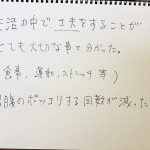 生活の中で工夫をすることが
とても大切な事と分かった。
(食事、運動、ストレッチ等)
腸のポッコリする回数が減った